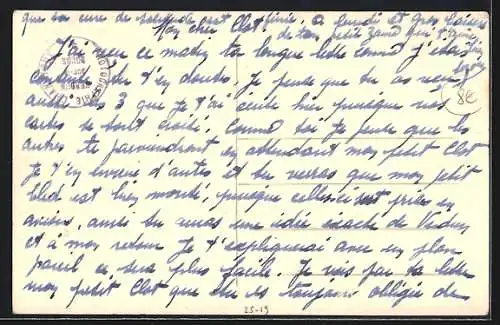 que ton cure de solitude soit finie. à lundi et gros baisers
de ton petit Zand qui t'aime
Mon cher Clot.
J'ai reçu ce matin ta longue lettre comme j'étais
content tu t'en doutes. Je pense que tu as reçu
aussi les 3 que je t'ai écrite hier puisque nos
cartes se sont croisé. Comme toi je pense que les
autres te parviendront en attendant mon petit Clot
je t'en envoie d'autres et tu verras que mon petit
bled est bien monté, puisque celles-ci est prises en
avions, ainsi tu auras une idée exacte de
et à mon retour je t'expliquerai avec un plan
pareil ce sera plus facile. Je vois par ta lettre
mon petit Clot que tu es toujours obligée de
8€
25-19